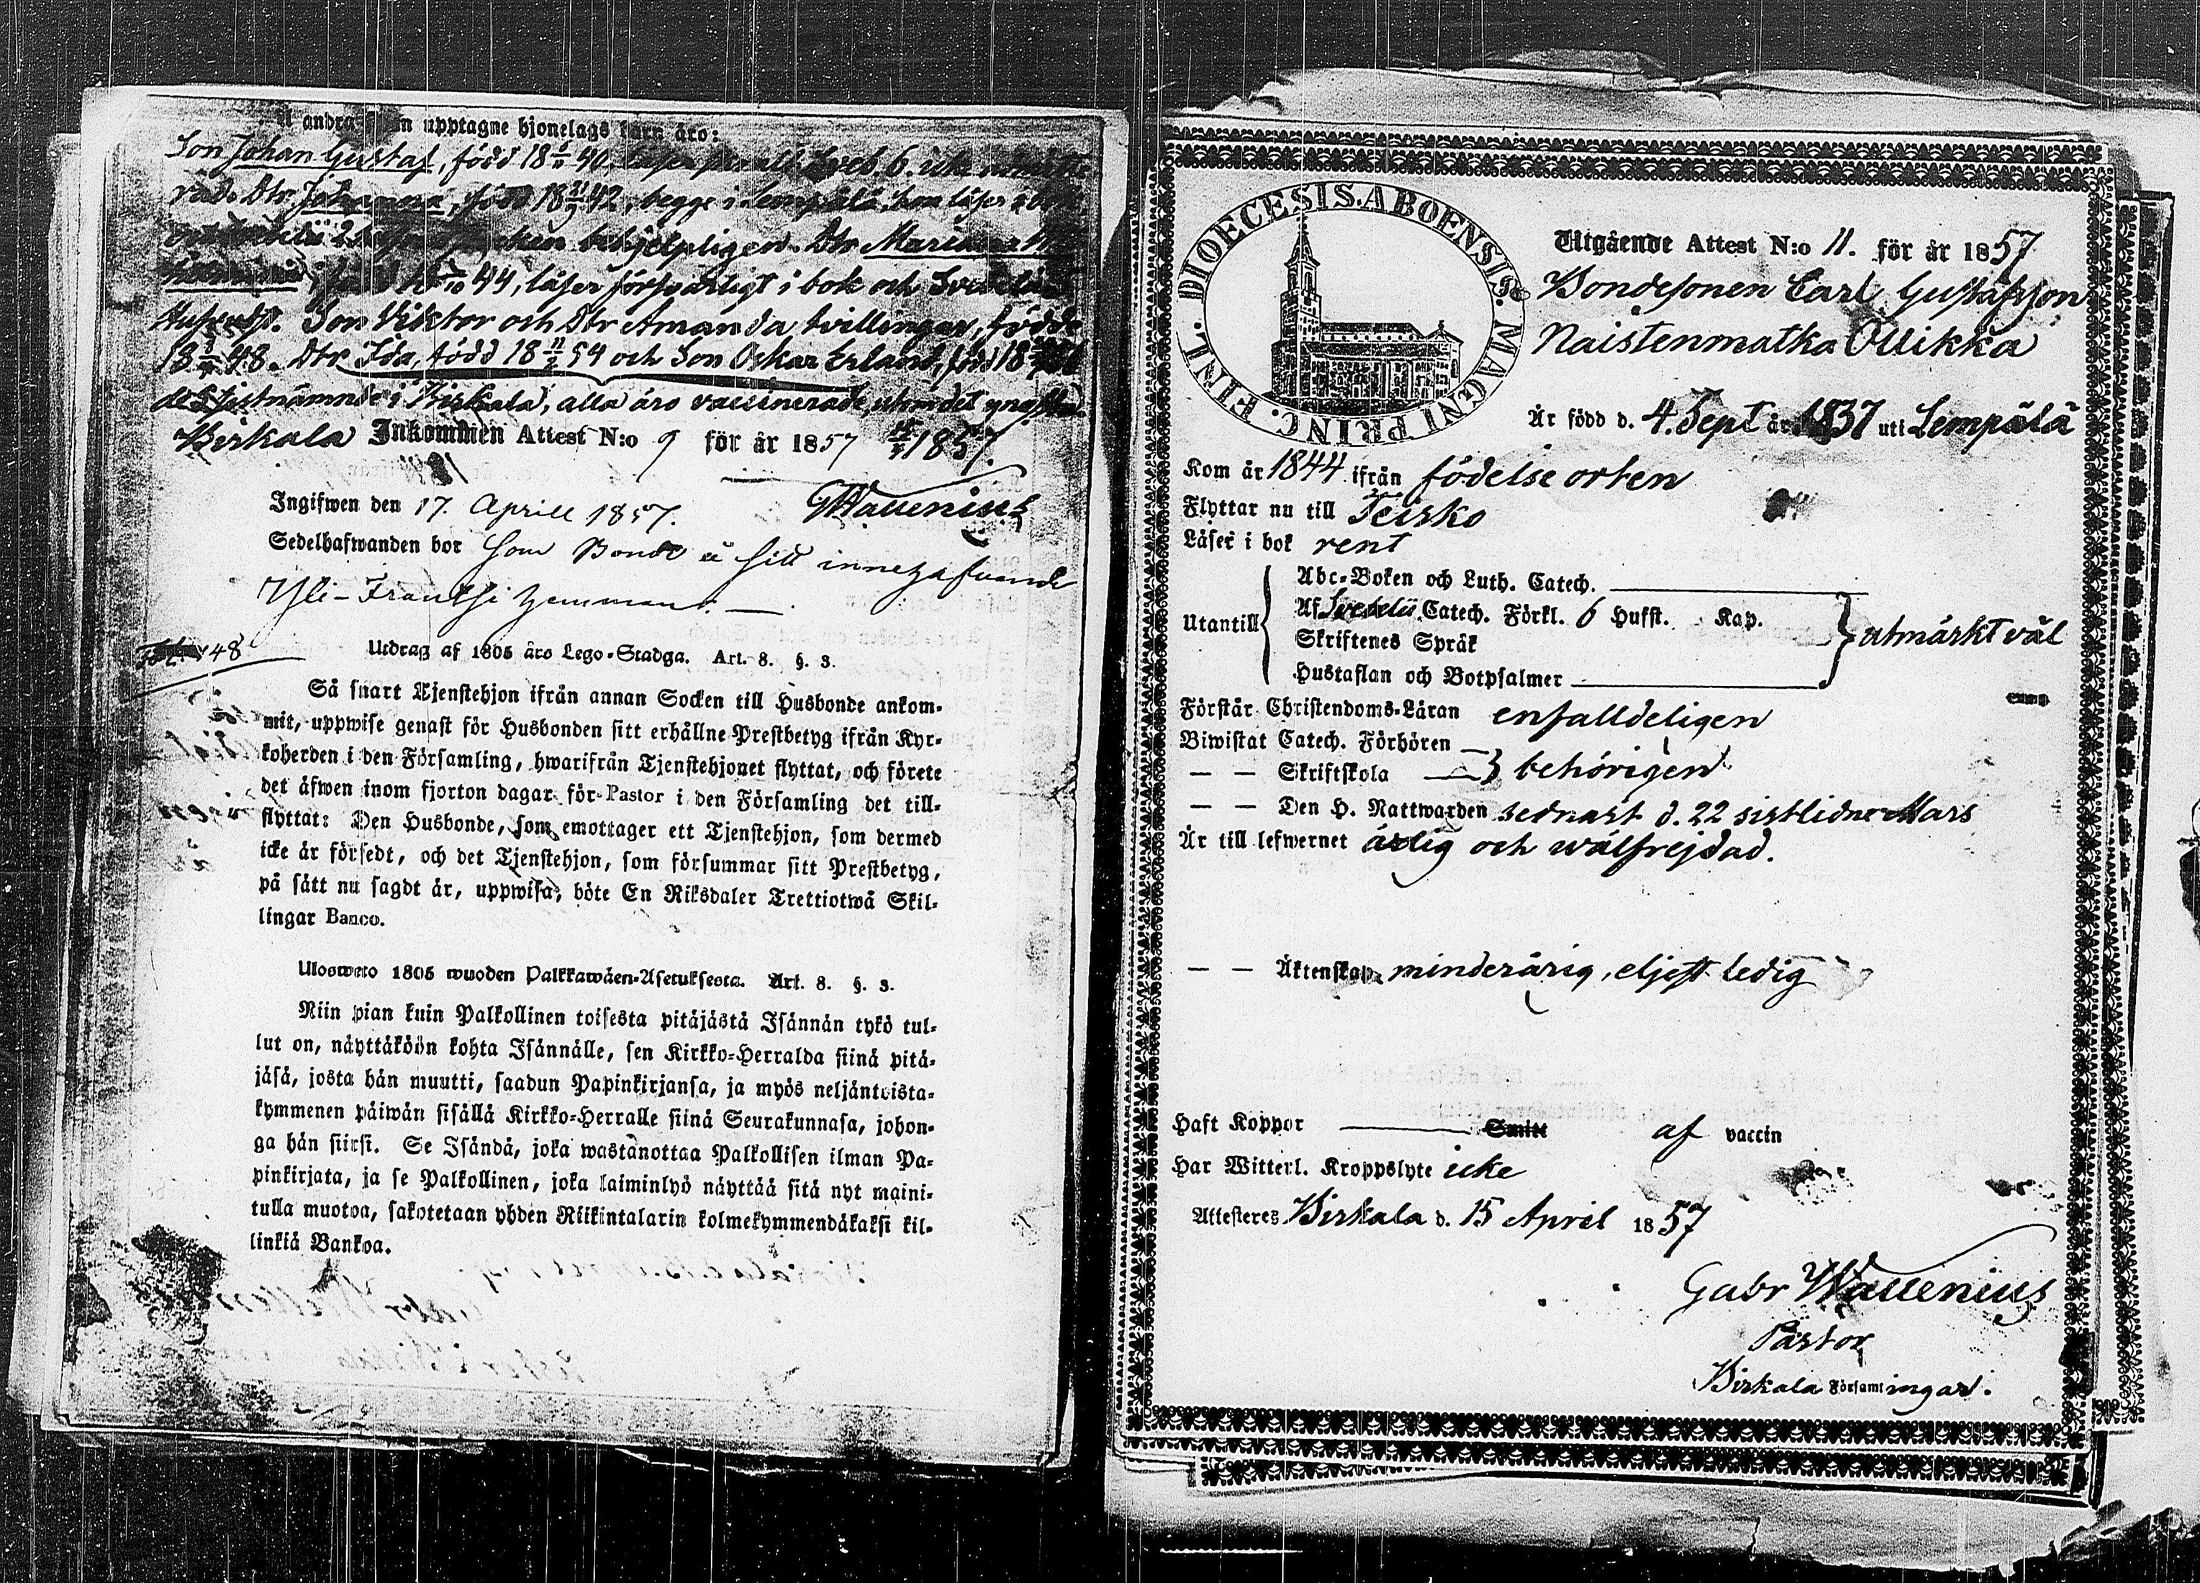 å andra sidan upptagne hjonelags barn äro:
Son Johan Gustaf, född 18 40, Sveb. 6. icke
Dtr Johanna, född 18 42, begge i Lempälä, hon läser i bok
behjelpligen. Dtr Maria
44, läser försvarligt i bok och Svebelii
Hufvudst. Son Viktor och Dtr Amanda tvillingar, födde
18 48. Dtr Ida, född 18 11/2 54 och Son Oskar Erland, född 18
de sistnämnde i Birkala, alla äro vaccinerade, utom det yngsta.
Birkala Inkommen Attest N:o 9 för år 1857 1857.
GWallenius
Ingifwen den 17 Aprill 1857.
Sedelhafwanden bor som Bonde å sitt innehafvande
Yli-Frantsi hemman. —
Fol. 48
Utdrag af 1805 års Lego-Stadga. Art. 8. §. 3.
Så snart Tjenstehjon ifrån annan Socken till Husbonde ankom-
mit, uppwise genast för Husbonden sitt erhållne Prestbetyg ifrån Kyr-
koherden i den Församling, hwarifrån Tjenstehjonet flyttat, och förete
det äfwen inom fjorton dagar för Pastor i den Församling det till-
flyttat: Den Husbonde, som emottager ett Tjenstehjon, som dermed
icke är försedt, och det Tjenstehjon, som försummar sitt Prestbetyg,
på sätt nu sagdt är, uppwisa, böte En Riksdaler Trettiotwå Skil-
lingar Banco.
Ulosweto 1805 wuoden Palkkawäen-Asetuksesta. Art. 8. §. 3.
Niin pian kuin Palkollinen toisesta pitäjästä Isännän tykö tul-
lut on, näyttäköön kohta Isännälle, sen Kirkko-Herralda siinä pitä-
jäsä, josta hän muutti, saadun Papinkirjansa, ja myös neljäntoista-
kymmenen päiwän sisällä Kirkko-Herralle siinä Seurakunnasa, johon-
ga hän siirsi. Se Isändä, joka wastanottaa Palkollisen ilman Pa-
pinkirjata, ja se Palkollinen, joka laiminlyö näyttää sitä nyt maini-
tulla muotoa, sakotetaan yhden Riikintalarin kolmekymmendäkaksi kil-
linkiä Bankoa.
DIOECESIS. ABOENSIS. MAGNI PRINC. FINL.
Utgående Attest N:o 11. för år 1857
Bondesonen Carl Gustafsson
Naistenmatka Ollikka
Är född d. 4. Sept år 1837 uti Lempälä
Kom år 1844 ifrån födelse orten
Flyttar nu till Teisko
Läser i bok rent
Utantill
Abc-Boken och Luth. Catech.
Af Svebelii Catech. Förkl. 6 Hufst. Kap.
Skriftenes Språk
Hustaflan och Botpsalmer
utmärkt väl
Förstår Christendoms-Läran enfalldeligen
Biwistat Catech. Förhören
— — Skriftskola — behörigen
— — Den H. Nattwarden sednast d. 22 sistlidne Mars
Är till lefwernet ärlig och wälfrejdad.
— — Äktenskap minderårig, eljest ledig
Haft Koppor — Smitt af vaccin
Har Witterl. Kroppslyte icke
Attesteres Birkala d. 15 April 1857
Gabr Wallenius
Pastor
Birkala Församlingar.